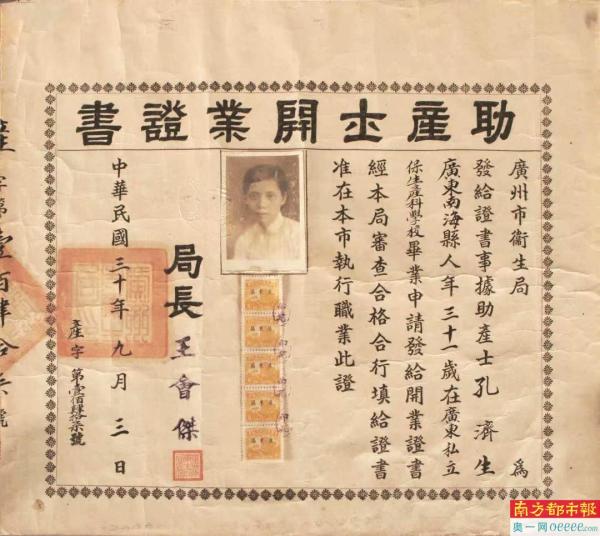 助產士開業證書
廣州市衞生局 為
發給證書事據助產士孔濟生
廣東南海縣人年三十一歲在廣東私立
保生產科學校畢業申請發給開業證書
經本局審查合格合行填給證書
准在本市執行職業此證
局長 王會傑
中華民國三十年九月三日
產字第壹佰肆拾柒號
字第壹百肆拾
號
南方都市報
奥一网oeeee.com